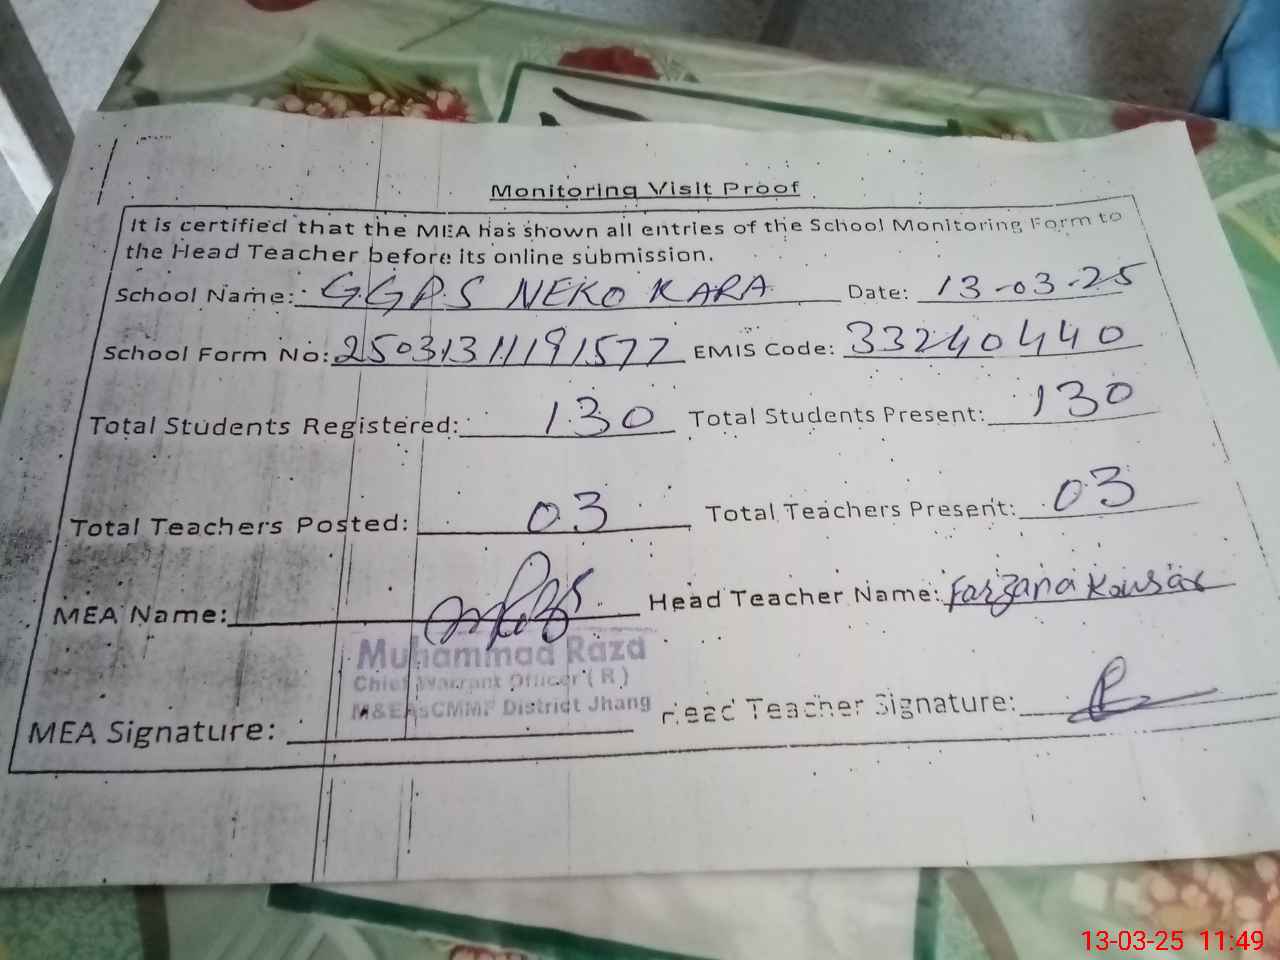 Monitoring Visit Proof
It is certified that the MEA has shown all entries of the School Monitoring Form to
the Head Teacher before its online submission.
School Name: GGPS NEKO KARA Date: 13-03-25
School Form No: 25031311191577 EMIS Code: 33240440
Total Students Registered: 130 Total Students Present: 130
Total Teachers Posted: 03 Total Teachers Present: 03
MEA Name: Head Teacher Name: Farzana Kousar
Muhammad Raza
Chief Warrant Officer (R)
M&EAsCMMF District Jhang
MEA Signature: Head Teacher Signature:
13-03-25 11:49